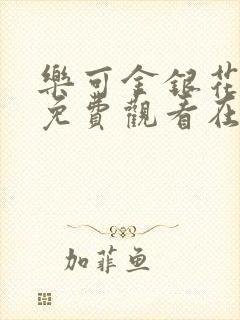 樂可金銀花
免費觀看在
加菲鱼